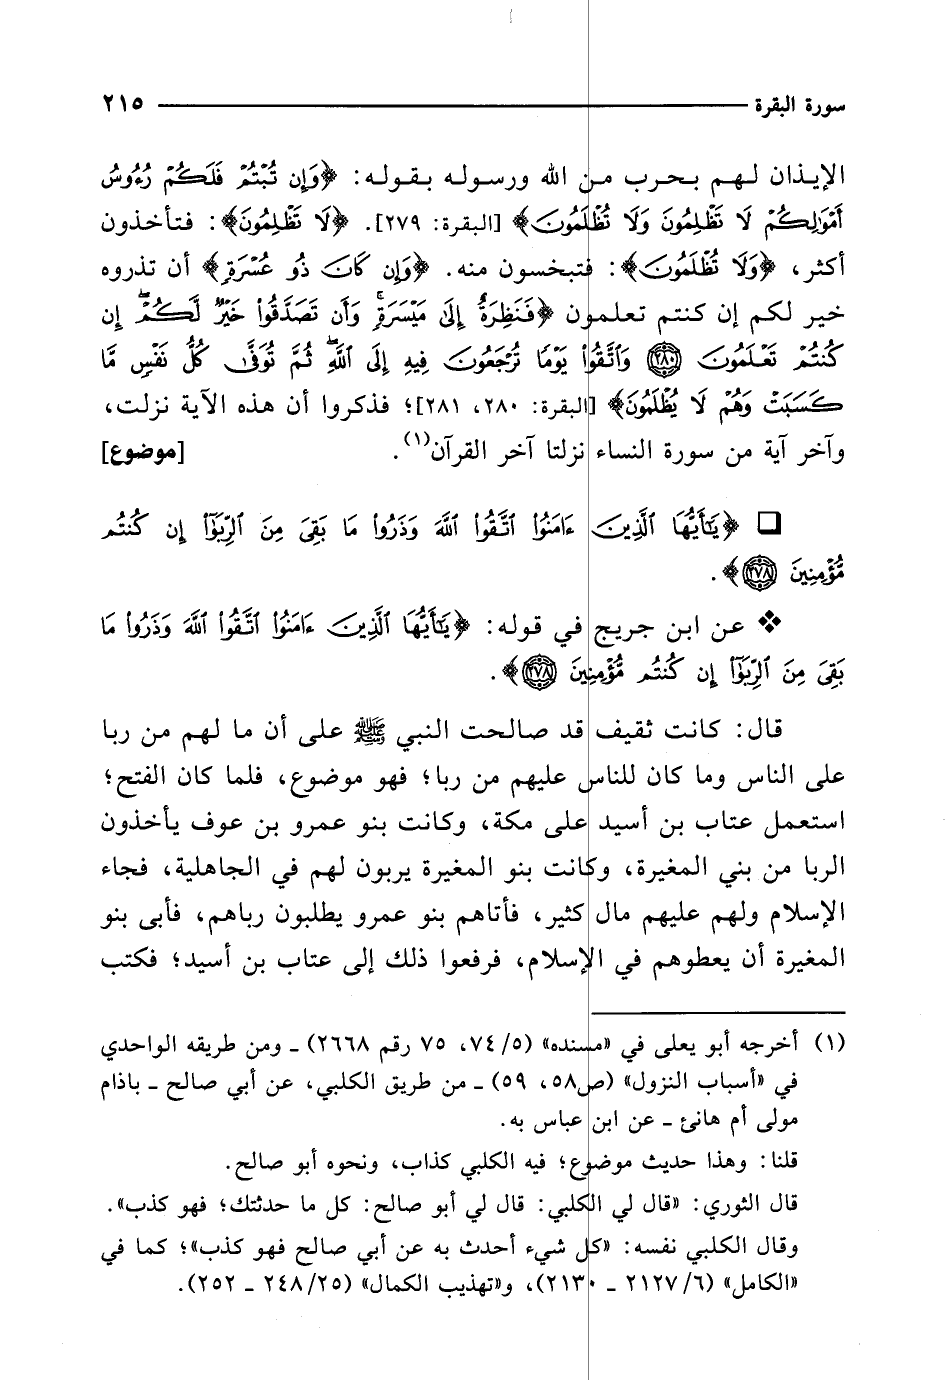 سورة البقرة ٢١٥
الإيذان لهم بحرب من الله ورسوله بقوله: ﴿وَإِن تُبْتُمْ فَلَكُمْ رُءُوسُ
أَمْوَٰلِكُمْ لَا تَظْلِمُونَ وَلَا تُظْلَمُونَ﴾ [البقرة: ٢٧٩]. ﴿لَا تَظْلِمُونَ﴾: فتأخذون
أكثر، ﴿وَلَا تُظْلَمُونَ﴾: فتبخسون منه. ﴿وَإِن كَانَ ذُو عُسْرَةٍ﴾ أن تذروه
خير لكم إن كنتم تعلمون ﴿فَنَظِرَةٌ إِلَىٰ مَيْسَرَةٍ ۚ وَأَن تَصَدَّقُوا۟ خَيْرٌ لَّكُمْ ۖ إِن
كُنتُمْ تَعْلَمُونَ ۝٢٨٠ وَٱتَّقُوا۟ يَوْمًا تُرْجَعُونَ فِيهِ إِلَى ٱللَّهِ ۖ ثُمَّ تُوَفَّىٰ كُلُّ نَفْسٍ مَّا
كَسَبَتْ وَهُمْ لَا يُظْلَمُونَ﴾ [البقرة: ٢٨٠، ٢٨١]؛ فذكروا أن هذه الآية نزلت،
وآخر آية من سورة النساء نزلتا آخر القرآن(١). [موضوع]
❑ ﴿يَٰٓأَيُّهَا ٱلَّذِينَ ءَامَنُوا۟ ٱتَّقُوا۟ ٱللَّهَ وَذَرُوا۟ مَا بَقِىَ مِنَ ٱلرِّبَوٰٓا۟ إِن كُنتُم
مُّؤْمِنِينَ ۝٢٧٨﴾.
❖ عن ابن جريج في قوله: ﴿يَٰٓأَيُّهَا ٱلَّذِينَ ءَامَنُوا۟ ٱتَّقُوا۟ ٱللَّهَ وَذَرُوا۟ مَا
بَقِىَ مِنَ ٱلرِّبَوٰٓا۟ إِن كُنتُم مُّؤْمِنِينَ ۝٢٧٨﴾.
قال: كانت ثقيف قد صالحت النبي ﷺ على أن ما لهم من ربا
على الناس وما كان للناس عليهم من ربا؛ فهو موضوع، فلما كان الفتح؛
استعمل عتاب بن أسيد على مكة، وكانت بنو عمرو بن عوف يأخذون
الربا من بني المغيرة، وكانت بنو المغيرة يربون لهم في الجاهلية، فجاء
الإسلام ولهم عليهم مال كثير، فأتاهم بنو عمرو يطلبون رباهم، فأبى بنو
المغيرة أن يعطوهم في الإسلام، فرفعوا ذلك إلى عتاب بن أسيد؛ فكتب
(١) أخرجه أبو يعلى في «مسنده» (٥/ ٧٤، ٧٥ رقم ٢٦٦٨) ـ ومن طريقه الواحدي
في «أسباب النزول» (ص٥٨، ٥٩) ـ من طريق الكلبي، عن أبي صالح ـ باذام
مولى أم هانئ ـ عن ابن عباس به.
قلنا: وهذا حديث موضوع؛ فيه الكلبي كذاب، ونحوه أبو صالح.
قال الثوري: «قال لي الكلبي: قال لي أبو صالح: كل ما حدثتك؛ فهو كذب».
وقال الكلبي نفسه: «كل شيء أحدث به عن أبي صالح فهو كذب»؛ كما في
«الكامل» (٦/ ٢١٢٧ ـ ٢١٣٠)، و«تهذيب الكمال» (٢٥/ ٢٤٨ ـ ٢٥٢).